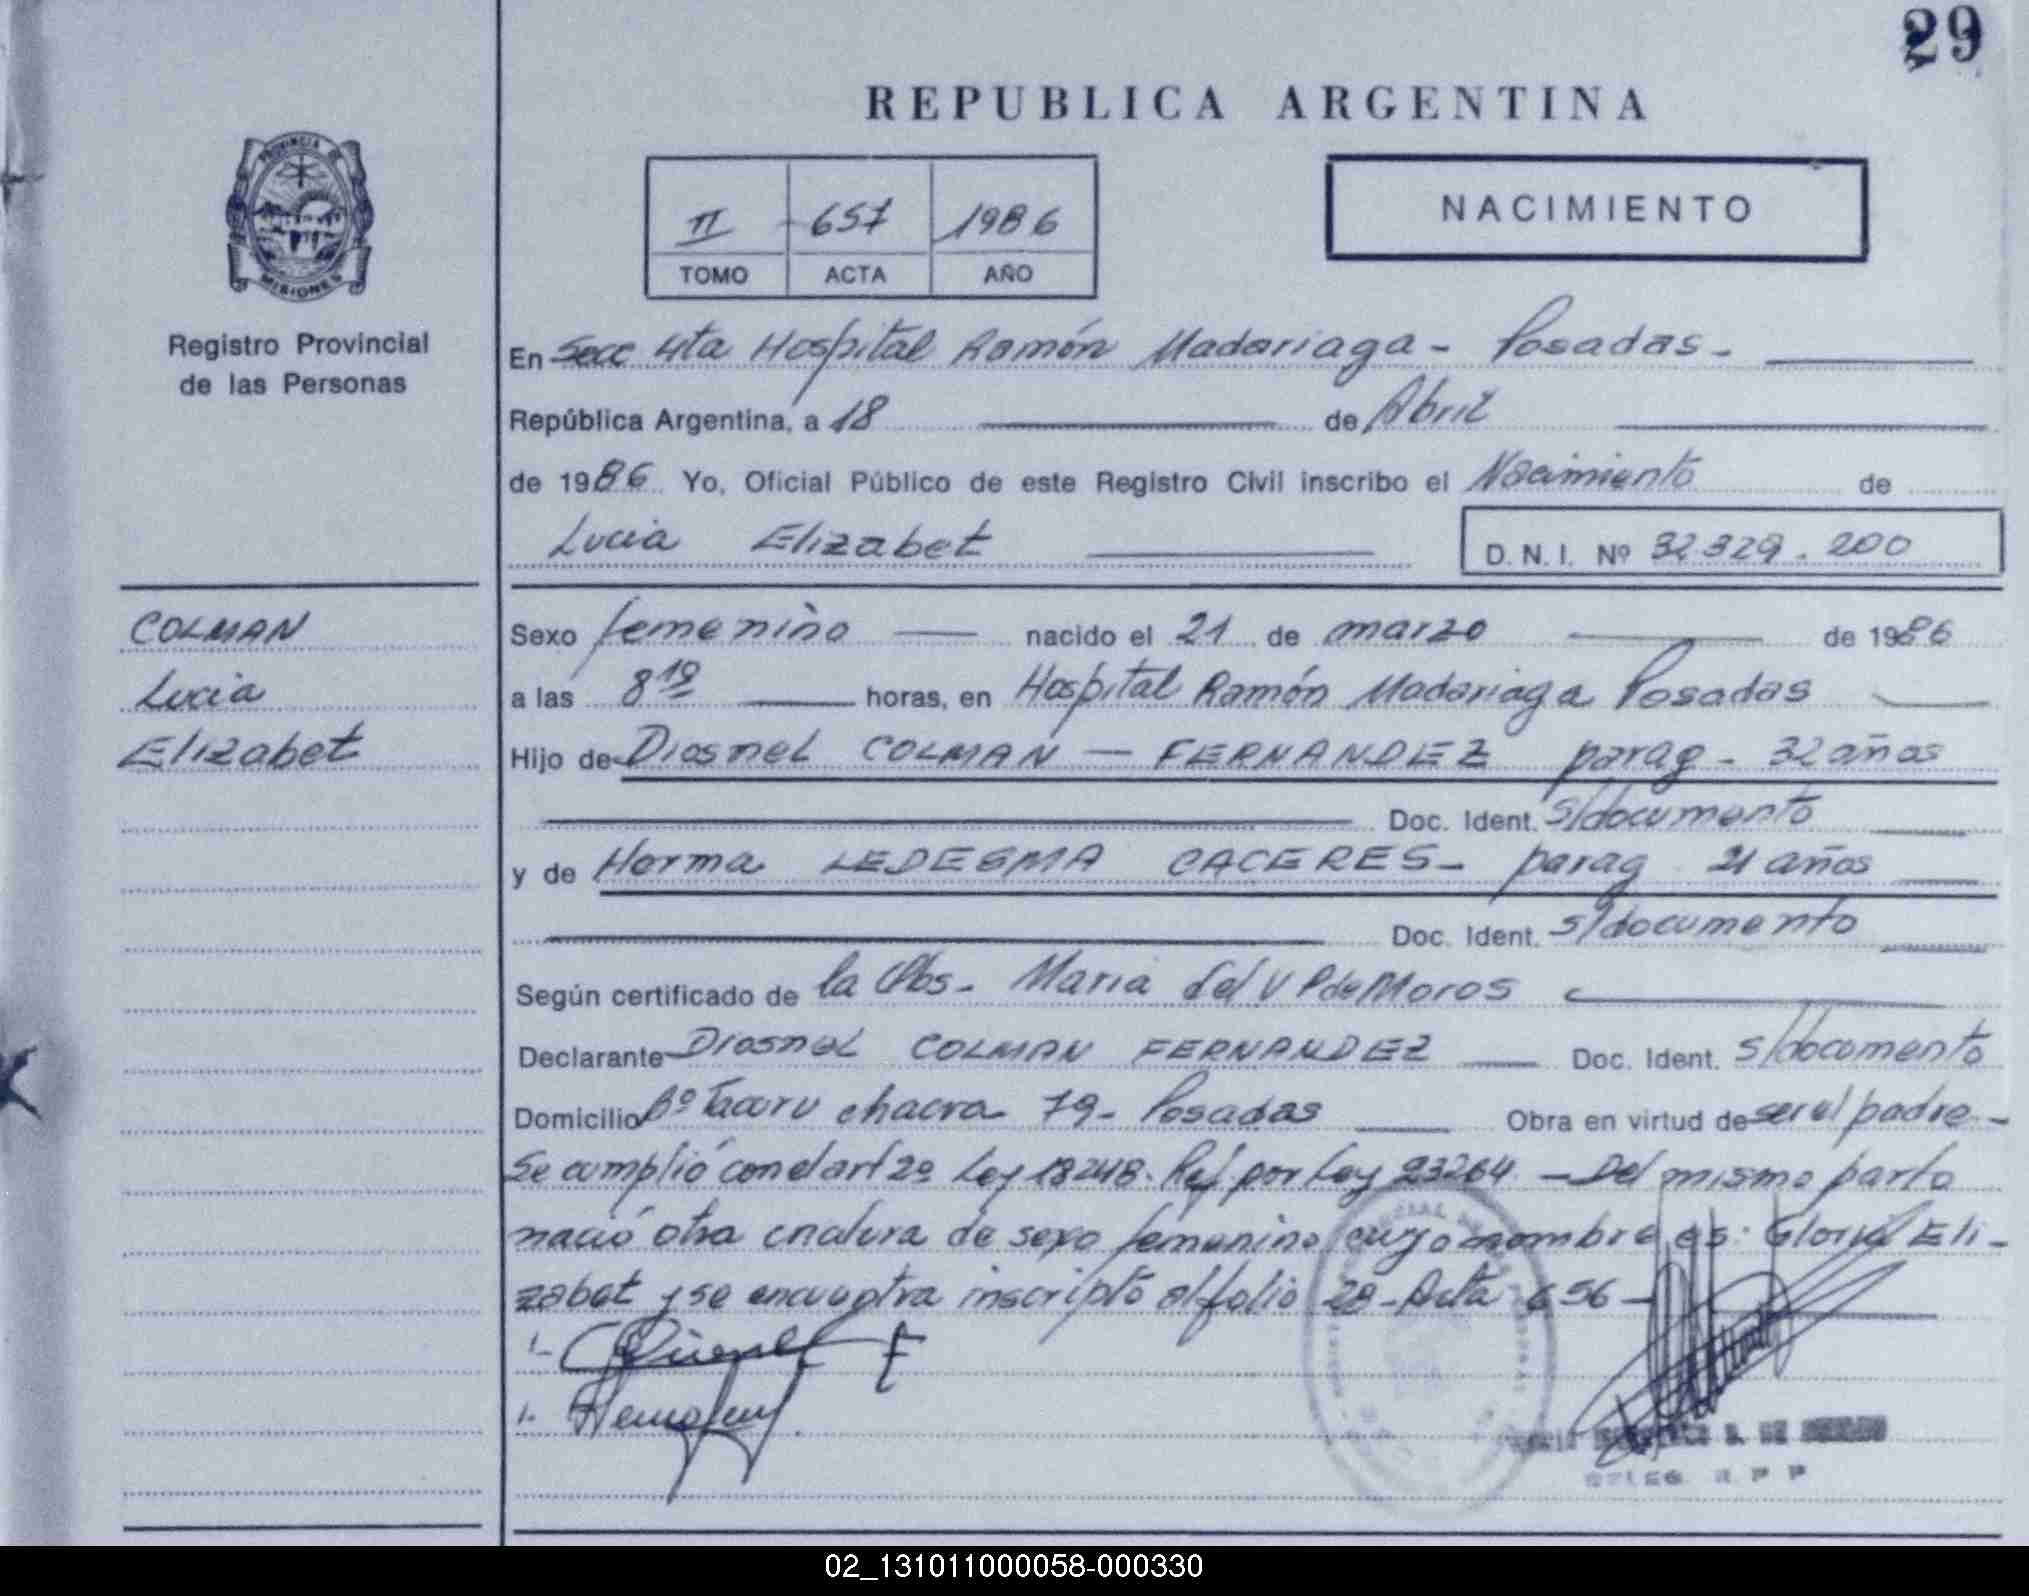 29
REPUBLICA ARGENTINA
PROVINCIA DE
MISIONES
Registro Provincial
de las Personas
II 657 1986
TOMO ACTA AÑO
NACIMIENTO
En Secc 4ta Hospital Ramón Madariaga - Posadas -
República Argentina, a 18 de Abril
de 1986 Yo, Oficial Público de este Registro Civil inscribo el Nacimiento de
Lucia Elizabet
D. N. I. Nº 32 329 . 200
COLMAN
Lucia
Elizabet
Sexo femenino nacido el 21 de marzo de 1986
a las 8 10 horas, en Hospital Ramón Madariaga Posadas
Hijo de Diosnel COLMAN — FERNANDEZ parag - 32 años
Doc. Ident. s/documento
y de Herma LEDESMA CACERES - parag 21 años
Doc. Ident. s/documento
Según certificado de la Obs - Maria del V P de Moros
Declarante Diosnel COLMAN FERNANDEZ Doc. Ident. s/documento
Domicilio Bº Tacuru chacra 79 - Posadas Obra en virtud de ser el padre -
Se cumplió con el art 2º Ley 18248. Ref por Ley 23264. - Del mismo parto
nació otra criatura de sexo femenino cuyo nombre es: Gloria Eli-
zabet y se encuentra inscripto al folio 28 - Acta 656 -
1-
1-
DELEG. R P P
02_131011000058-000330